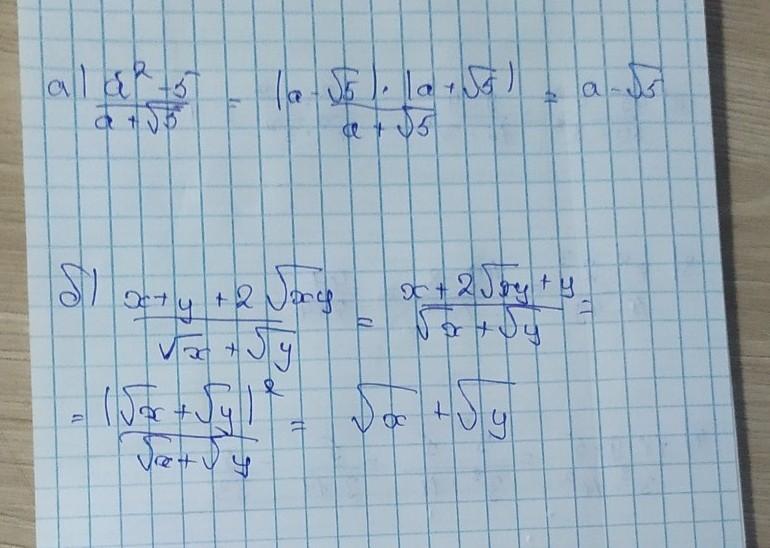 а) (a² - 5)/(a + √5) = (a - √5) · (a + √5)/(a + √5) = a - √5
б) (x + y + 2√xy)/(√x + √y) = (x + 2√xy + y)/(√x + √y) =
= (√x + √y)²/(√x + √y) = √x + √y